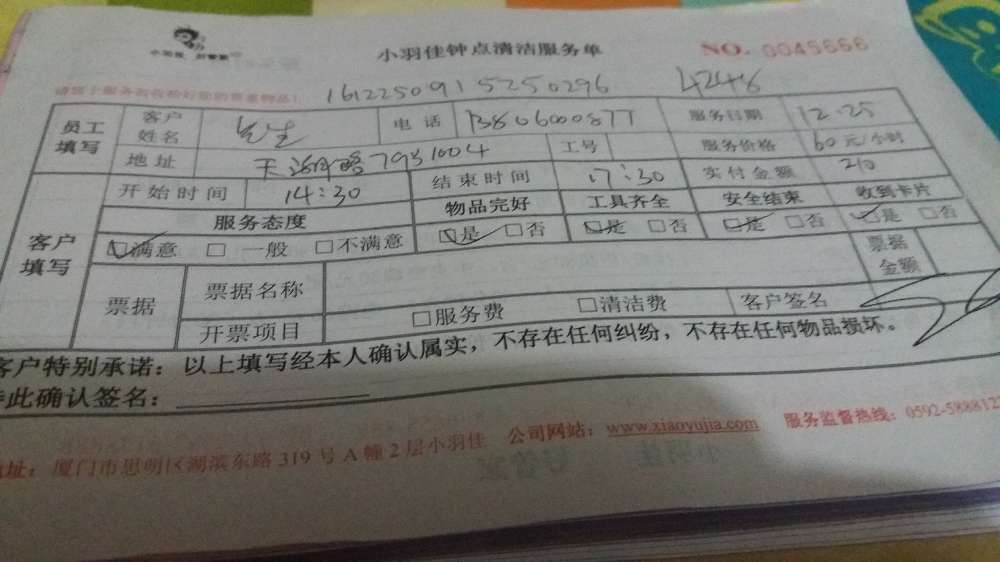 小羽佳钟点清洁服务单 NO. 0045666
请您上服务前收检好您的贵重物品!
1612250915250296 4248
员工填写 客户姓名 电话 13806000877 服务日期 12-25
地址 天湖路79号1004 工号 服务价格 60元/小时
开始时间 14:30 结束时间 17:30 实付金额 210
客户填写 服务态度 物品完好 工具齐全 安全结束 收到卡片
☑满意 □一般 □不满意 ☑是 □否 ☑是 □否 ☑是 □否 ☑是 □否
票据 票据名称 票据金额
开票项目 □服务费 □清洁费 客户签名
客户特别承诺:以上填写经本人确认属实,不存在任何纠纷,不存在任何物品损坏。
此确认签名:
地址:厦门市思明区湖滨东路319号A幢2层小羽佳 公司网站:www.xiaoyujia.com 服务监督热线:0592-588812